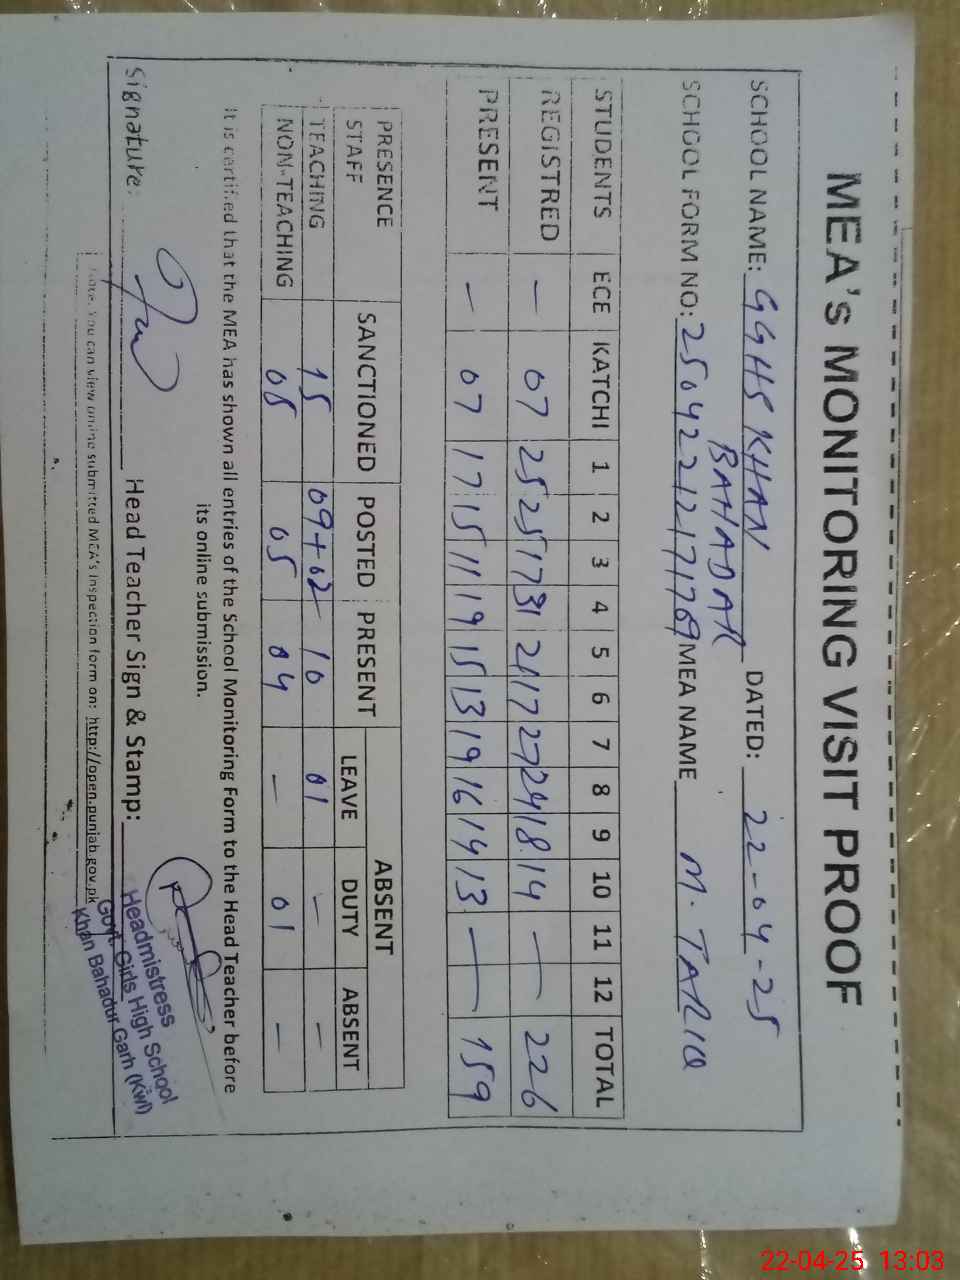 MEA's MONITORING VISIT PROOF
SCHOOL NAME: GGHS KHAN BAHADAR DATED: 22-04-25
SCHOOL FORM NO: 2504221217169 MEA NAME M. TARIQ
STUDENTS ECE KATCHI 1 2 3 4 5 6 7 8 9 10 11 12 TOTAL
REGISTRED — 07 25 25 17 31 21 17 27 24 18 14 — 226
PRESENT — 07 17 15 11 19 15 13 19 16 14 13 — 159
PRESENCE STAFF SANCTIONED POSTED PRESENT ABSENT
LEAVE DUTY ABSENT
TEACHING 15 09+02 10 01 — —
NON-TEACHING 05 05 04 — 01 —
It is certified that the MEA has shown all entries of the School Monitoring Form to the Head Teacher before
its online submission.
Signature: Head Teacher Sign & Stamp:
Headmistress
Govt. Girls High School
Khan Bahadur Garh (Kwl)
Note. You can view online submitted MEA's Inspection form on: http://open.punjab.gov.pk
22-04-25 13:03